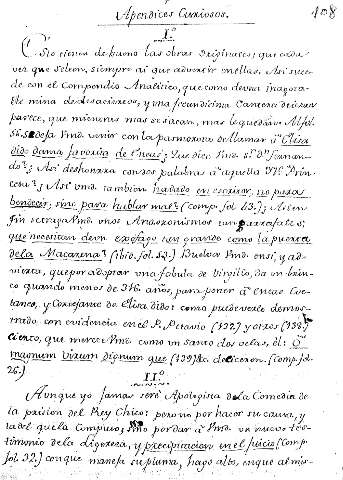 Apendices Curiosos.
408
I.º
Esto tienen de bueno las obras originales; que cada
vez que se leen, siempre ai que advertir en ellas. Asi suce-
de con el Compendio Analitico, que como de una inagota-
ble mina de desaciertos, y una fecundisima Cantera de
parece, que mientras mas se sacan, mas le quedan. Al fol.
56. se desa Vmd. venir con la pasmosa de llamar à Elisa
dido dama favorita de Eneas; Que dice Vmd. sr. Dn. Fernan-
do? Asi deshonra con dos palabras à aquella Prin-
cesa? Asi Vmd. tambien ha dado en escrivir, no para
bendecir, sino para hablar mal? (Comp. fol. 43.); Asi en
fin se traga Vmd. unos Anacronismos tan garrafales;
que necesitan de un exofago tan grande como la puerta
de la Macarena? (ibid. fol. 52.) Buelva Vmd. en si, y ad-
vierta, que por adoptar una fabula de Virgilio, da un brin-
co quando menos de 316 años, para poner à Eneas Coe-
taneo, y Cortejante de Elisa dido: como puede verle demos-
trado con evidencia en el P. Petavio (137.) y otros (138.)
cierto, que merece Vmd. como un santo dos velas, el: O
magnum virum dignum que (139) de ciceron. (Comp. fol.
26.)
II.º
Aunque yo jamas seré Apologista de la Comedia de
la prision del Rey Chico: pero no por hacer su causa, y
la del que la Compuso; sino por dar à Vmd. un nuevo tes-
timonio de la ligereza, y precipitacion en el juicio (Comp
fol. 32.) con que maneja su pluma, hago alto, en que al mis-